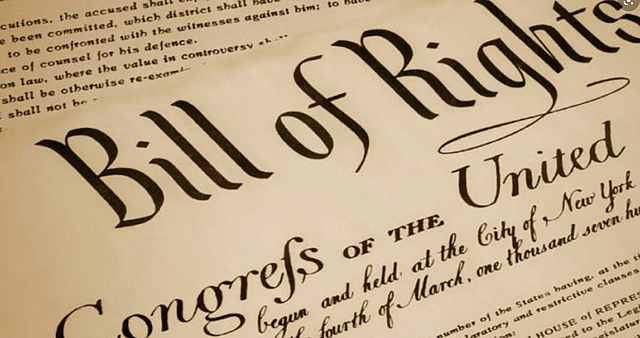 cutions, the accused shall
been committed, which district shall have
to be confronted with the witnesses against him; to
ce of counsel for his defence.
on law, where the value in controversy
shall be otherwise re-exami
shall not be
Bill of Rights
Congreſs OF THE United
begun and held at the City of New York
fourth of March, one thousand seven hu
number of the States having, at the
laratory and restrictive clauses
HOUSE of REPRE
to the Leg